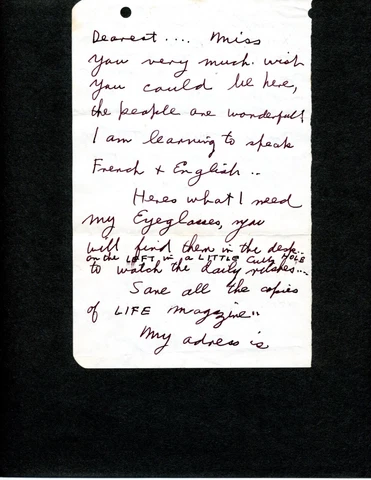 Dearest.... Miss
you very much. wish
you could be here,
the people are wonderful!
I am learning to speak
French + English..
Heres what I need
my Eyeglasses, you
will find them in the desk..
on the LEFT, in a LITTLE Cubby HOLE
to watch the daily rushes...
Save all the copies
of LIFE magazine..
My adress is